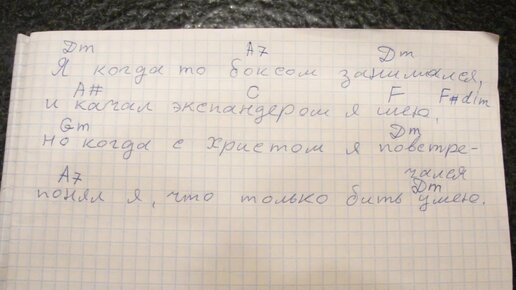 Dm A7 Dm
Я когда то боксом занимался,
A# C F F#dim
и качал эспандером я шею,
Gm Dm
но когда с Христом я повстре-
чался
A7 Dm
понял я, что только бить умею.